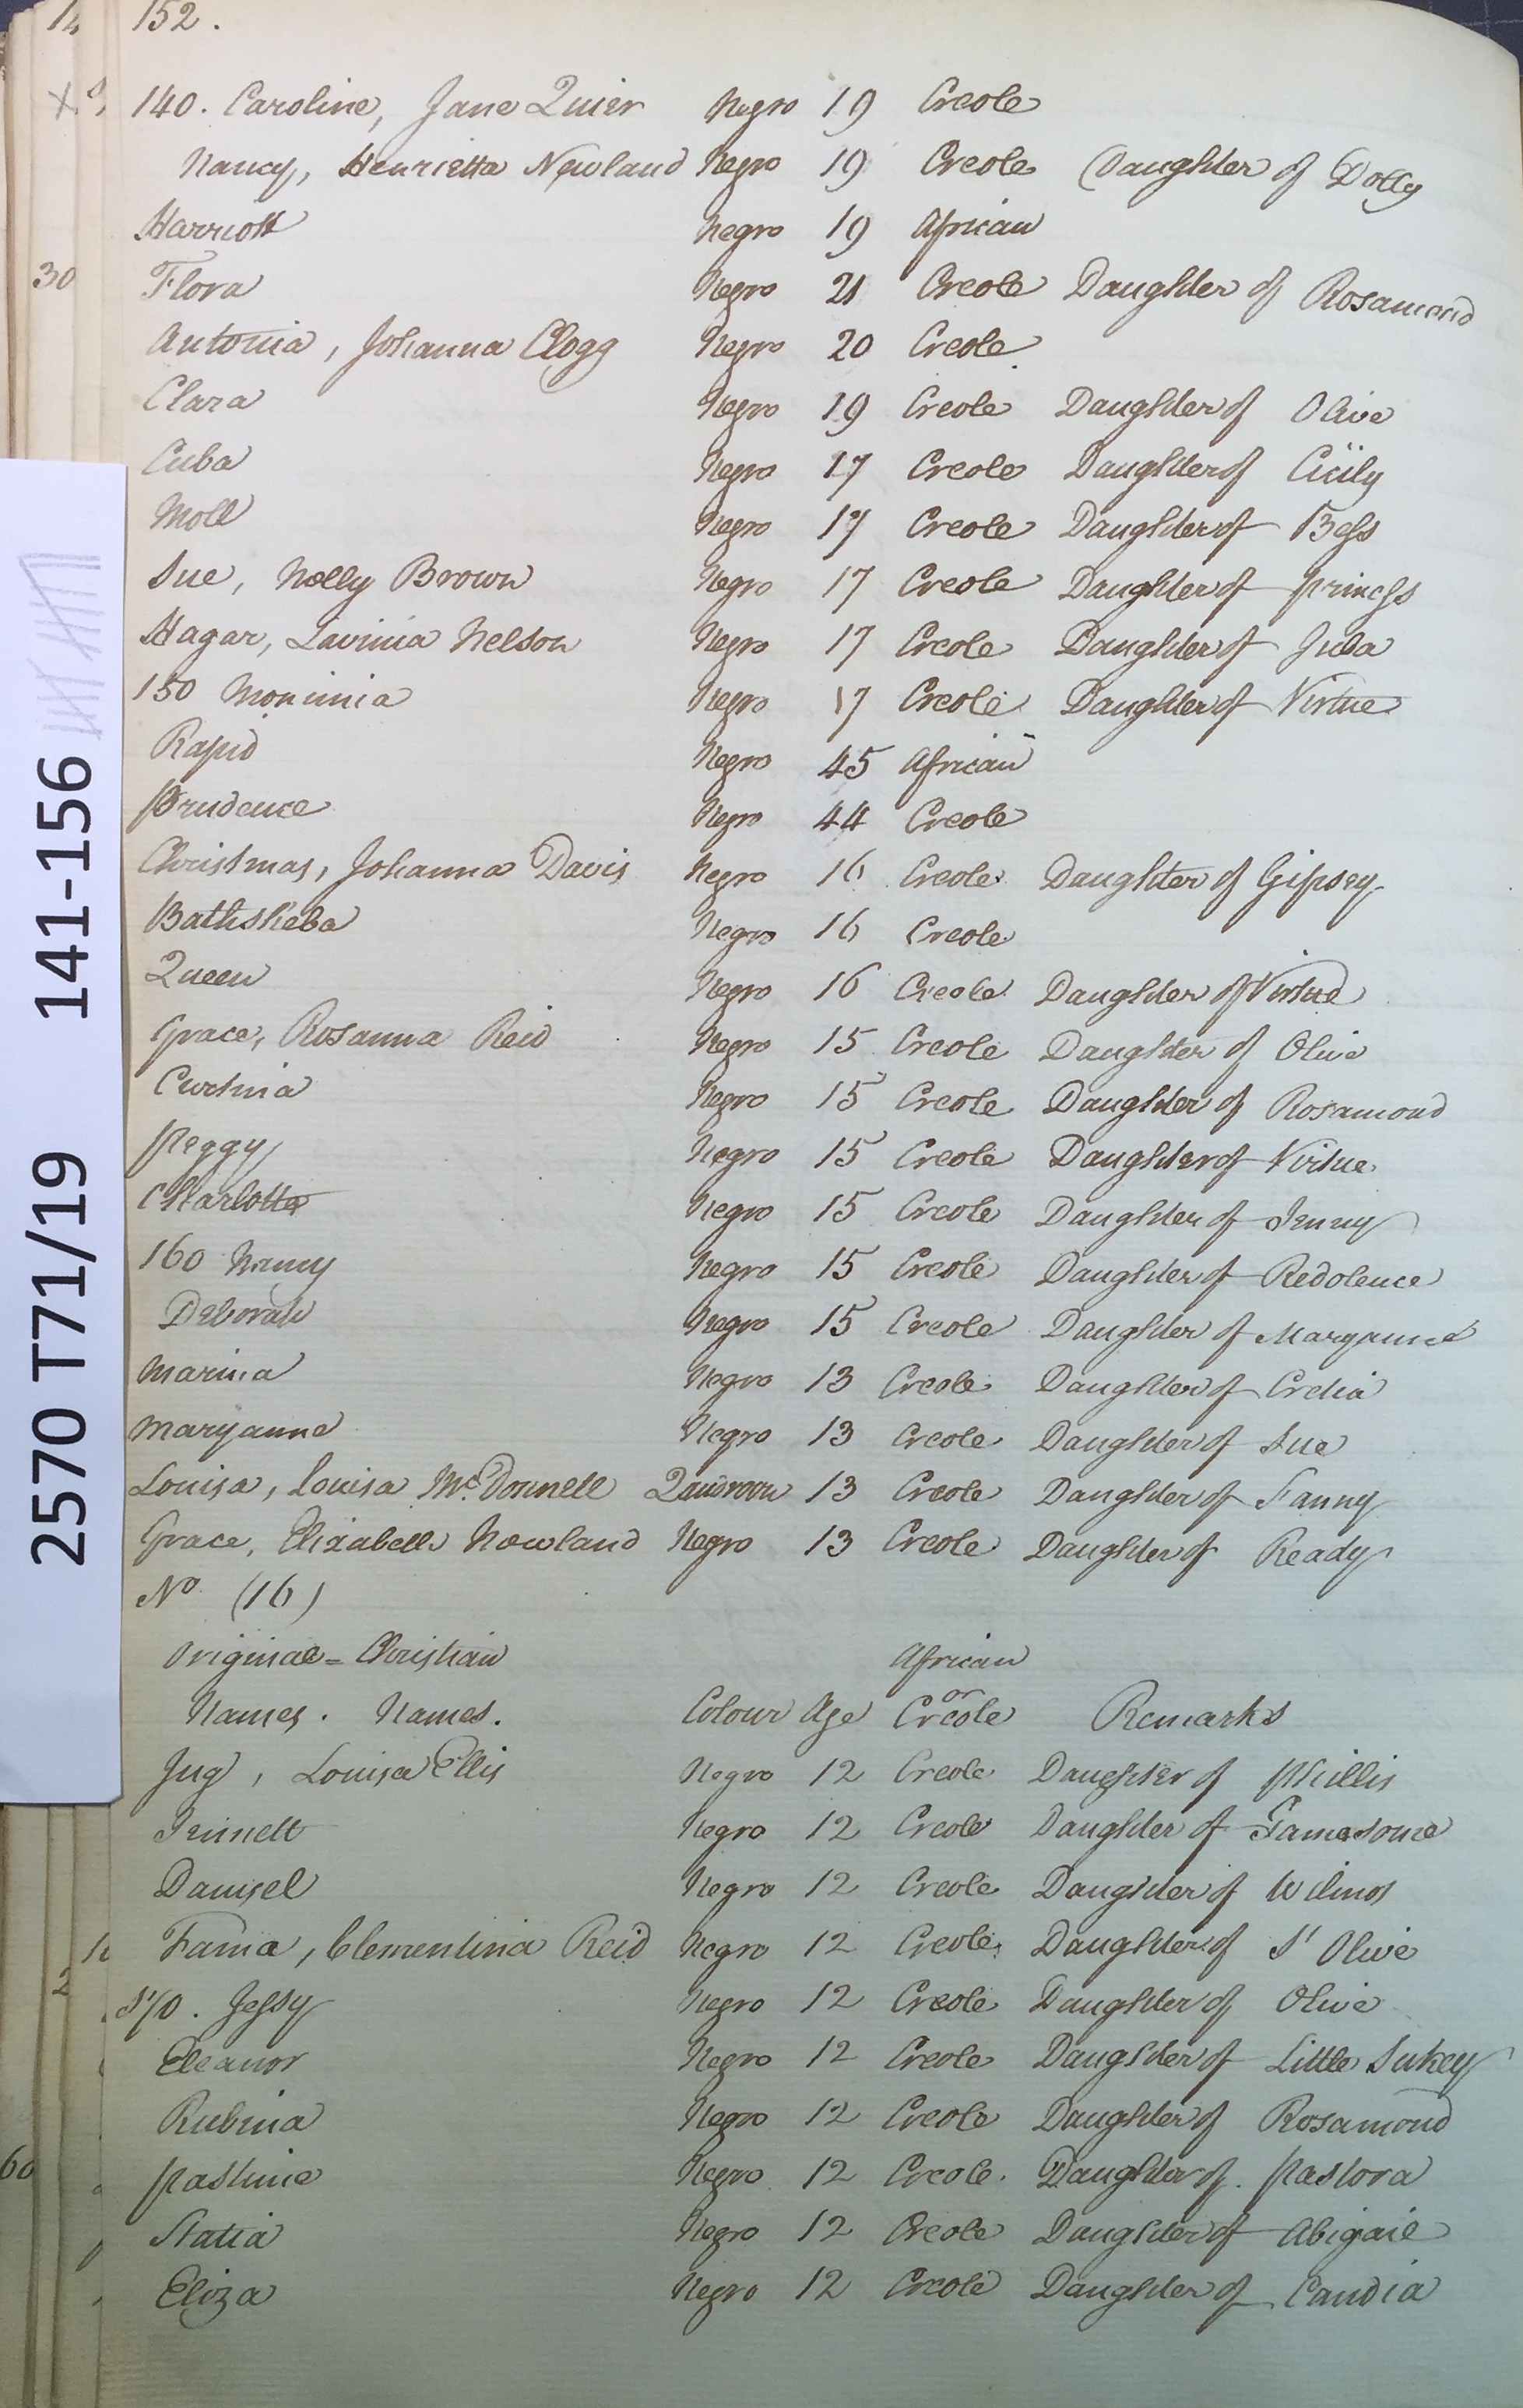 152.
140. Caroline, Jane Quier Negro 19 Creole
Nancy, Henrietta Newland Negro 19 Creole Daughter of Dolly
Harriott Negro 19 African
30
Flora Negro 21 Creole Daughter of Rosamond
Antonia, Johanna Clogg Negro 20 Creole
Clara Negro 19 Creole Daughter of Olive
Cuba Negro 17 Creole Daughter of Cicily
Moll Negro 17 Creole Daughter of Bess
Sue, Nelly Brown Negro 17 Creole Daughter of Princess
Hagar, Lavinia Nelson Negro 17 Creole Daughter of Juba
150 Monimia Negro 17 Creole Daughter of Virtue
Rapid Negro 45 African
Prudence Negro 44 Creole
Christmas, Johanna Davis Negro 16 Creole Daughter of Gipsey
Bathsheba Negro 16 Creole
Queen Negro 16 Creole Daughter of Virtue
Grace, Rosanna Reid Negro 15 Creole Daughter of Olive
Negro 15 Creole Daughter of Rosamond
Peggy Negro 15 Creole Daughter of Virtue
Charlotte Negro 15 Creole Daughter of Jenny
160 Nancy Negro 15 Creole Daughter of Redolence
Deborah Negro 15 Creole Daughter of Maryanne
Marina Negro 13 Creole Daughter of Cretia
Maryanne Negro 13 Creole Daughter of Sue
Louisa, Louisa McDonnell Quadroon 13 Creole Daughter of Fanny
Grace, Elizabeth Newland Negro 13 Creole Daughter of Ready
No (16)
Original = Christian African
Names. Names. Colour Age or Creole Remarks
Jug, Louisa Ellis Negro 12 Creole Daughter of Phillis
Jennett Negro 12 Creole Daughter of Gamesome
Damsel Negro 12 Creole Daughter of Wilmot
Fama, Clementina Reid Negro 12 Creole Daughter of St Olive
170. Jessy Negro 12 Creole Daughter of Olive
Eleanor Negro 12 Creole Daughter of Little Sukey
Rubina Negro 12 Creole Daughter of Rosamond
60
Pastime Negro 12 Creole Daughter of Pastora
Statia Negro 12 Creole Daughter of Abigail
Eliza Negro 12 Creole Daughter of Candia
2570 T71/19 141-156